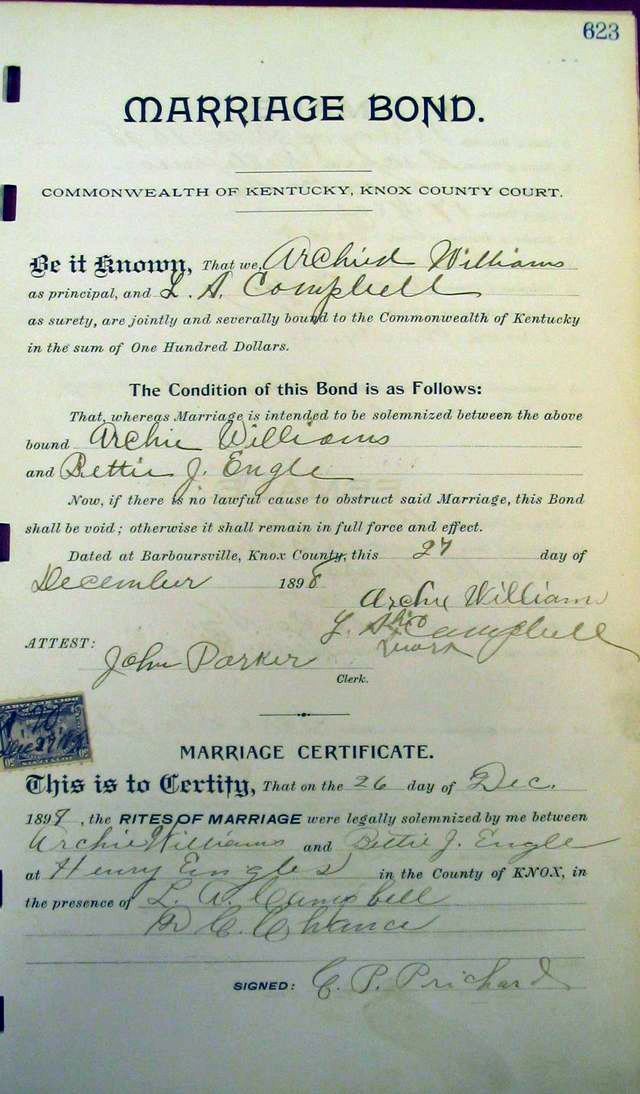 623
MARRIAGE BOND.
COMMONWEALTH OF KENTUCKY, KNOX COUNTY COURT.
Be it Known, That we, Archied Williams
as principal, and L. A. Campbell
as surety, are jointly and severally bound to the Commonwealth of Kentucky
in the sum of One Hundred Dollars.
The Condition of this Bond is as Follows:
That, whereas Marriage is intended to be solemnized between the above
bound Archie Williams
and Bettie J. Engle
Now, if there is no lawful cause to obstruct said Marriage, this Bond
shall be void; otherwise it shall remain in full force and effect.
Dated at Barboursville, Knox County, this 27 day of
December 1898
Archie Williams
L. A. his Campbell
mark
ATTEST:
John Parker
Clerk.
Dec 27
MARRIAGE CERTIFICATE.
This is to Certify, That on the 26 day of Dec.
189 , the RITES OF MARRIAGE were legally solemnized by me between
Archie Williams and Bettie J. Engle
at Henry Engles in the County of KNOX, in
the presence of L. A. Campbell
C. Chance
SIGNED: C. P. Prichard